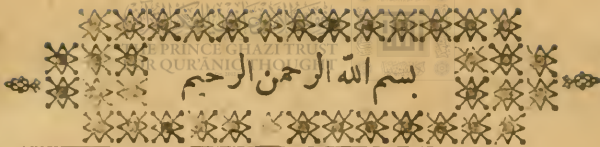 THE PRINCE GHAZI TRUST
FOR QUR'ĀNIC THOUGHT
بسم الله الرحمن الرحيم